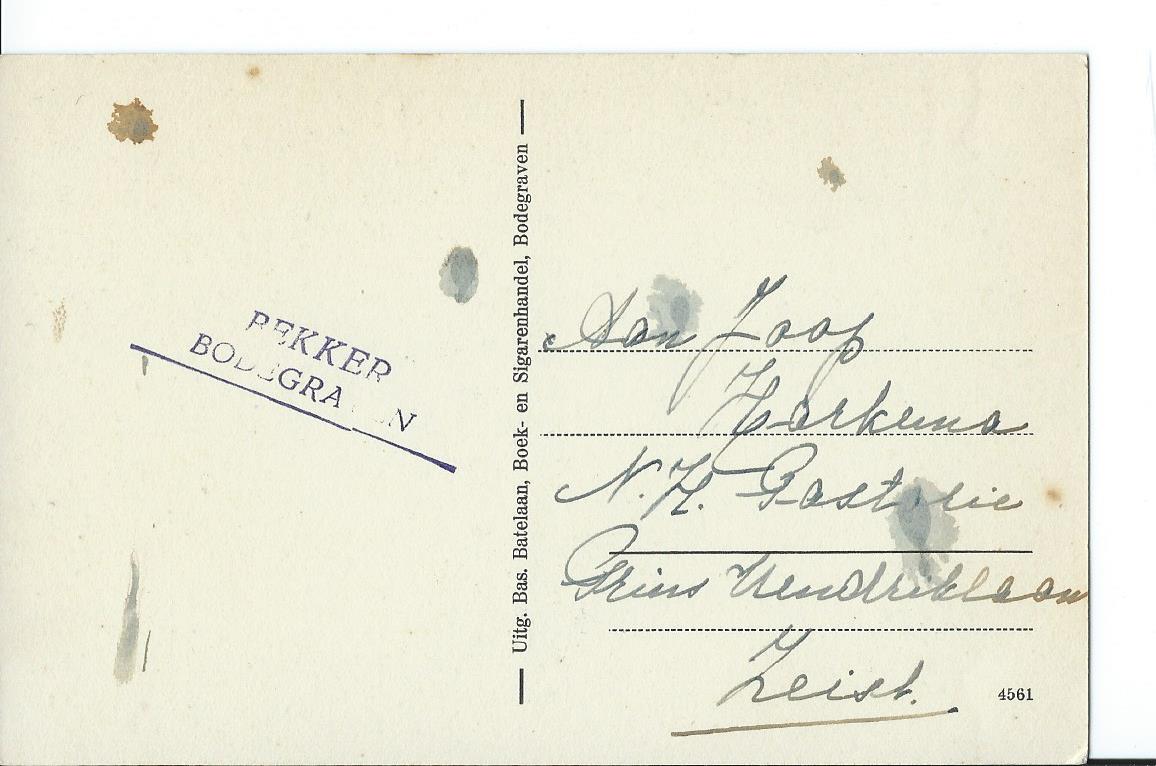 BEKKER
BODEGRAVEN
Uitg. Bas. Batelaan, Boek- en Sigarenhandel, Bodegraven
Aan Joop
Harkema
N.H. Pastorie
Prins Hendriklaan
Zeist.
4561